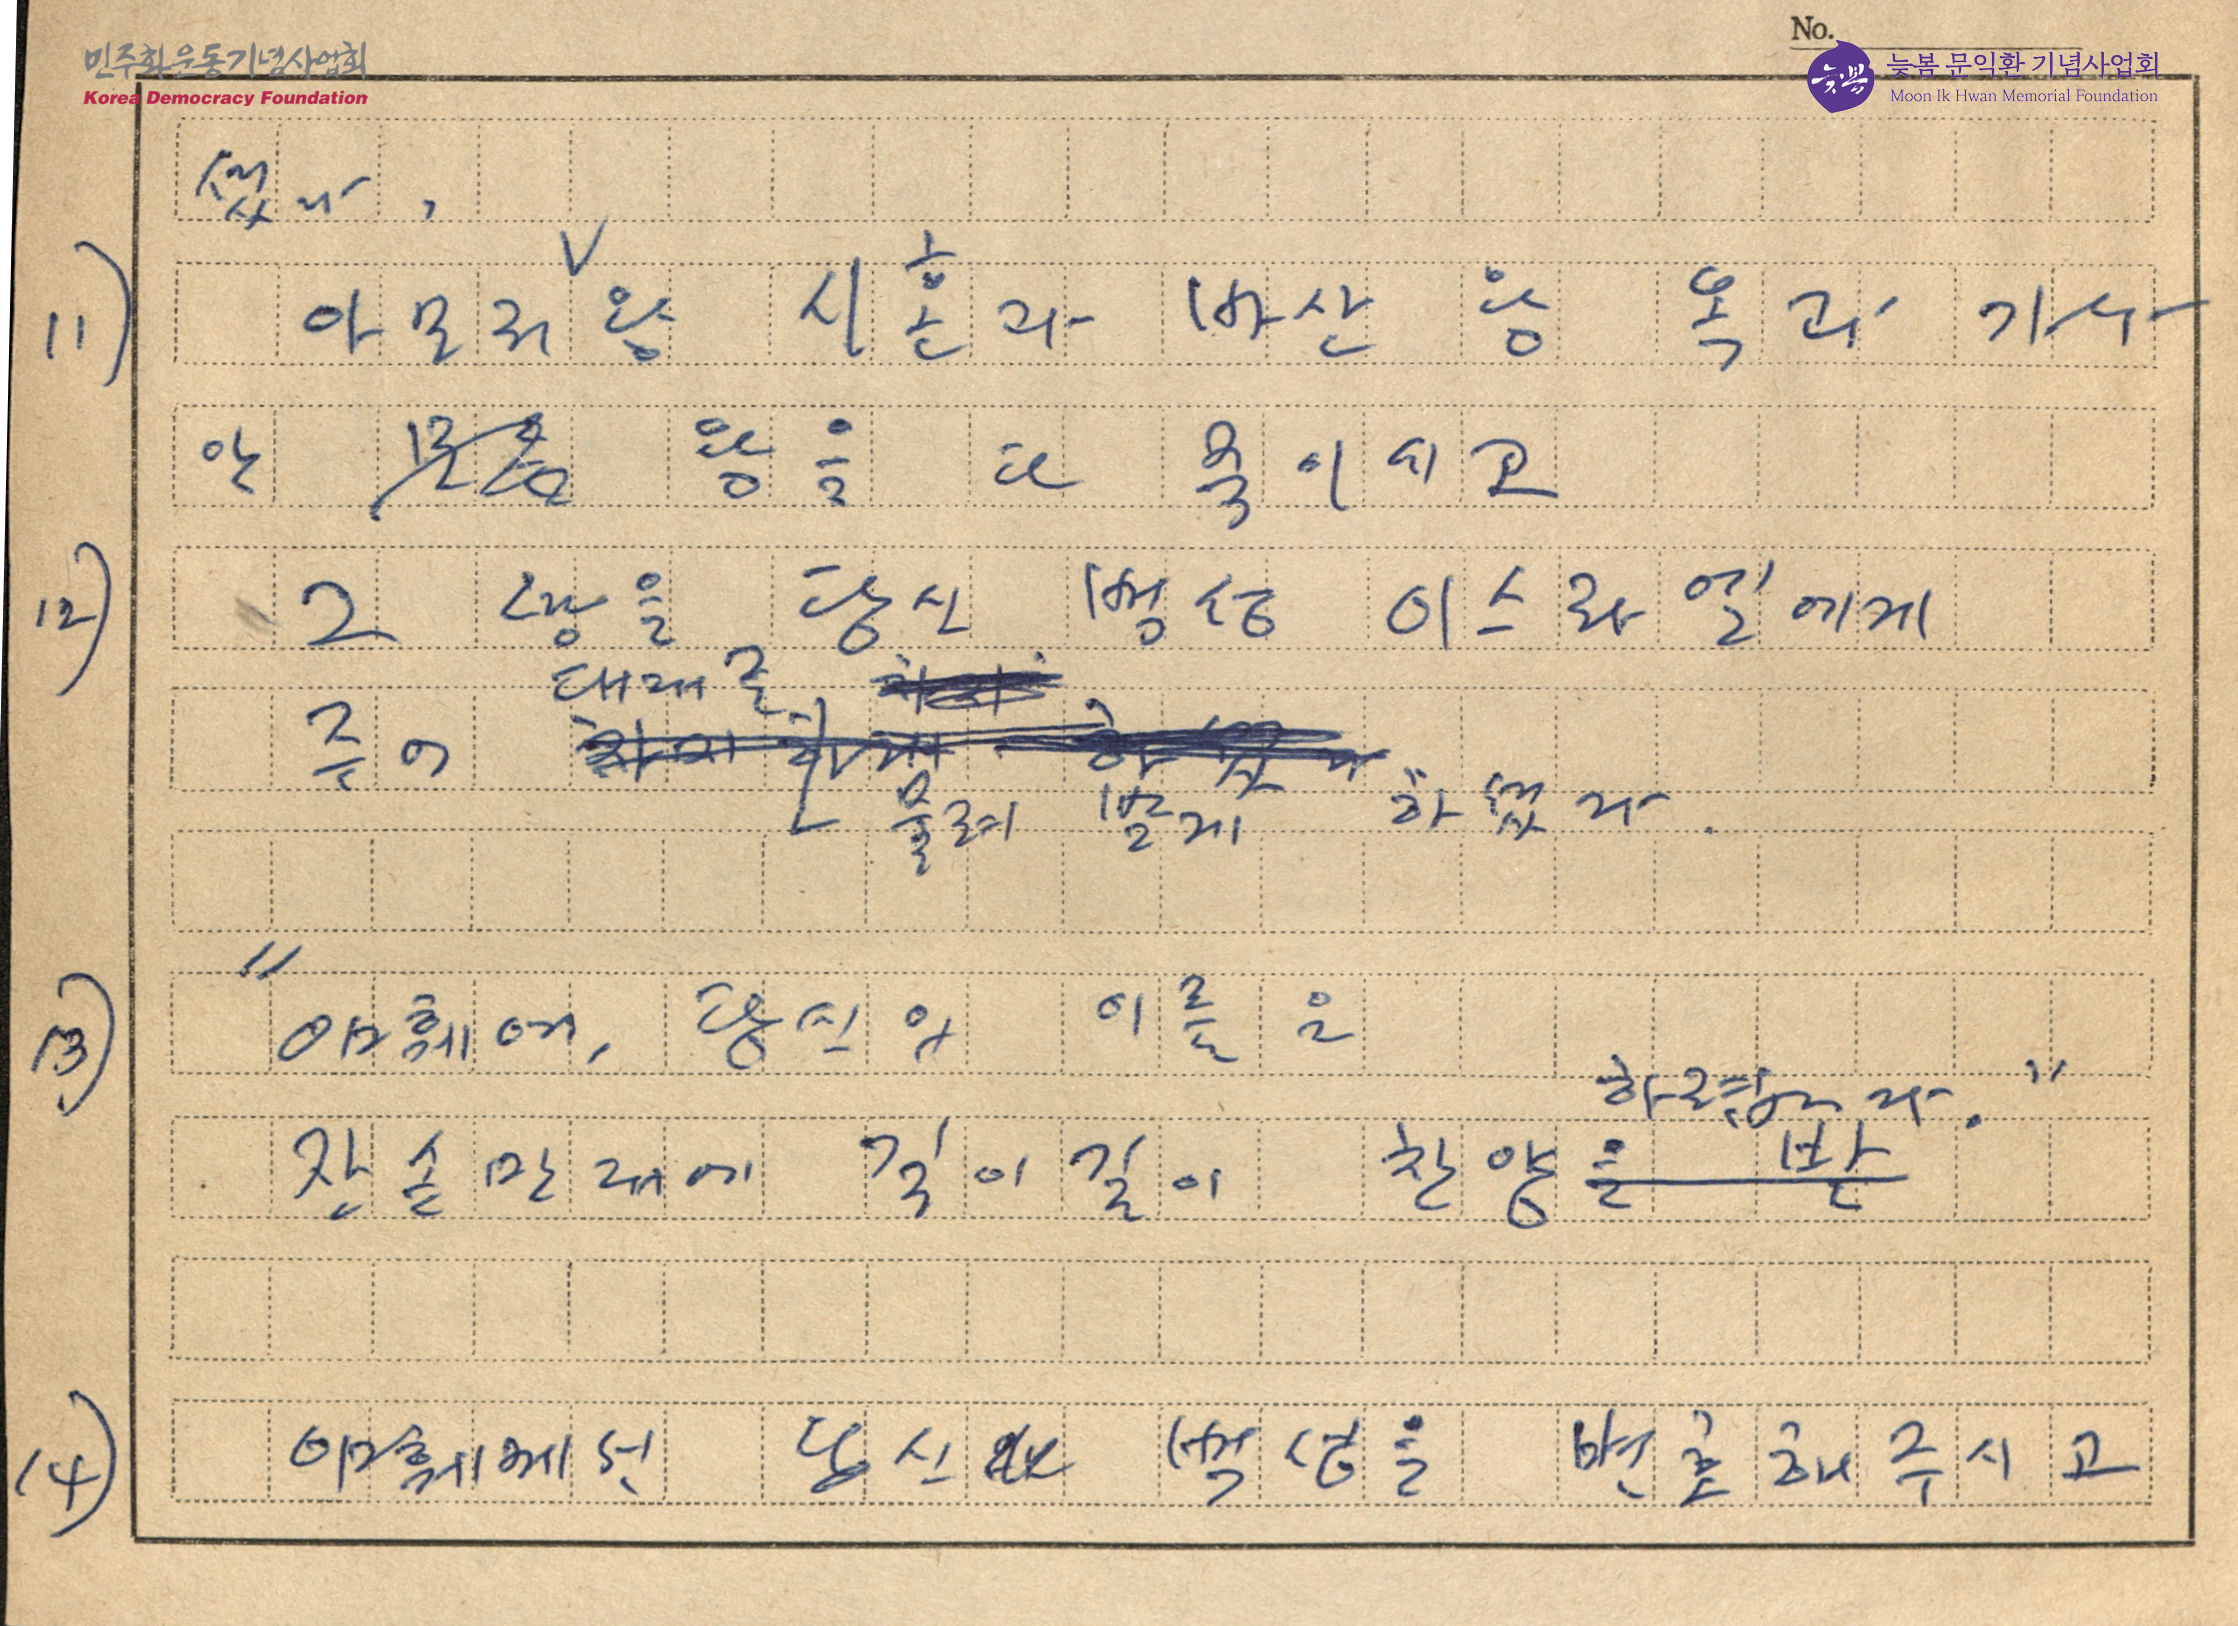 No.
민주화운동기념사업회
Korea Democracy Foundation
늦봄
늦봄 문익환 기념사업회
Moon Ik Hwan Memorial Foundation
셨다,
11) 아모리 왕 시혼과 바산 왕 옥과 가나
안 모든 왕을 다 죽이시고
12) 그 땅을 당신 백성 이스라엘에게
대대로
주어
물려 받게 하셨다.
13) "야훼여, 당신의 이름은
하렵니다."
자손만대에 길이길이 찬양을 받
14) 야훼께선 당신 백성을 변호해주시고